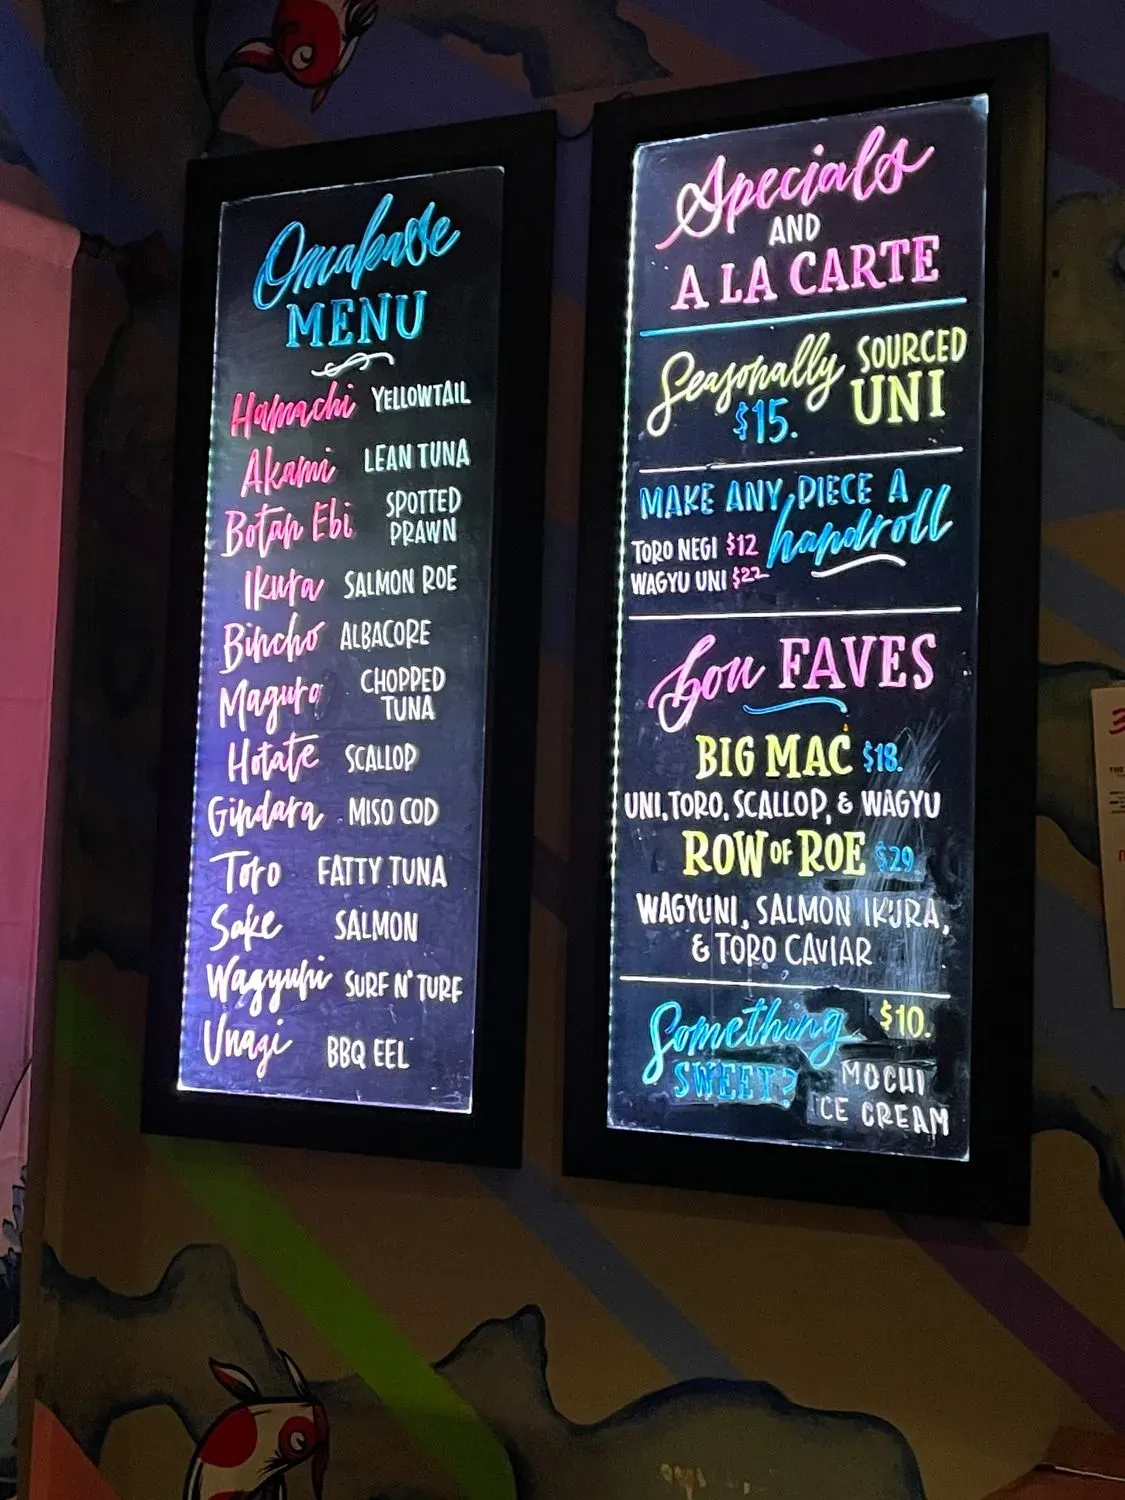 Omakase
MENU
Hamachi YELLOWTAIL
Akami LEAN TUNA
Botan Ebi SPOTTED PRAWN
Ikura SALMON ROE
Bincho ALBACORE
Maguro CHOPPED TUNA
Hotate SCALLOP
Gindara MISO COD
Toro FATTY TUNA
Sake SALMON
Wagyuni SURF N' TURF
Unagi BBQ EEL
Specials
AND
A LA CARTE
Seasonally SOURCED
UNI
$15.
MAKE ANY PIECE A
handroll
TORO NEGI $12
WAGYU UNI $22
FAVES
BIG MAC $18.
UNI, TORO, SCALLOP, & WAGYU
ROW OF ROE $29.
WAGYUNI, SALMON IKURA,
& TORO CAVIAR
Something $10.
SWEET? MOCHI
ICE CREAM